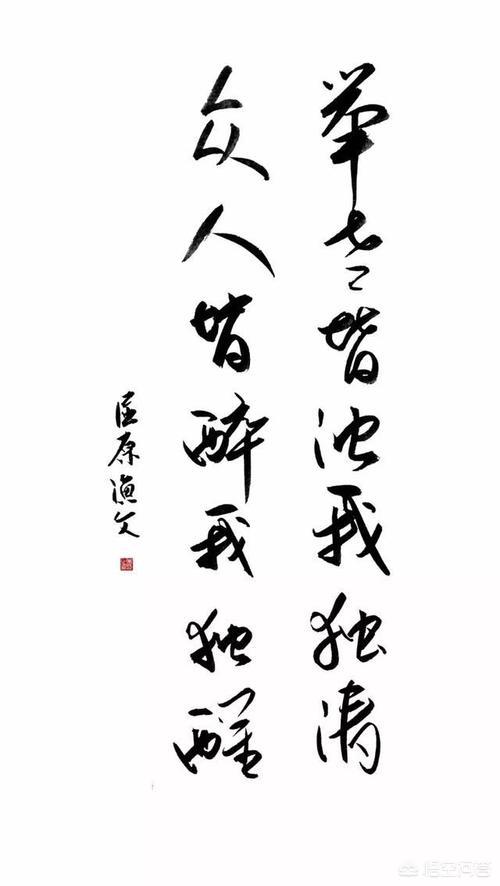 举世皆浊我独清
众人皆醉我独醒
屈原渔父
悟空问答